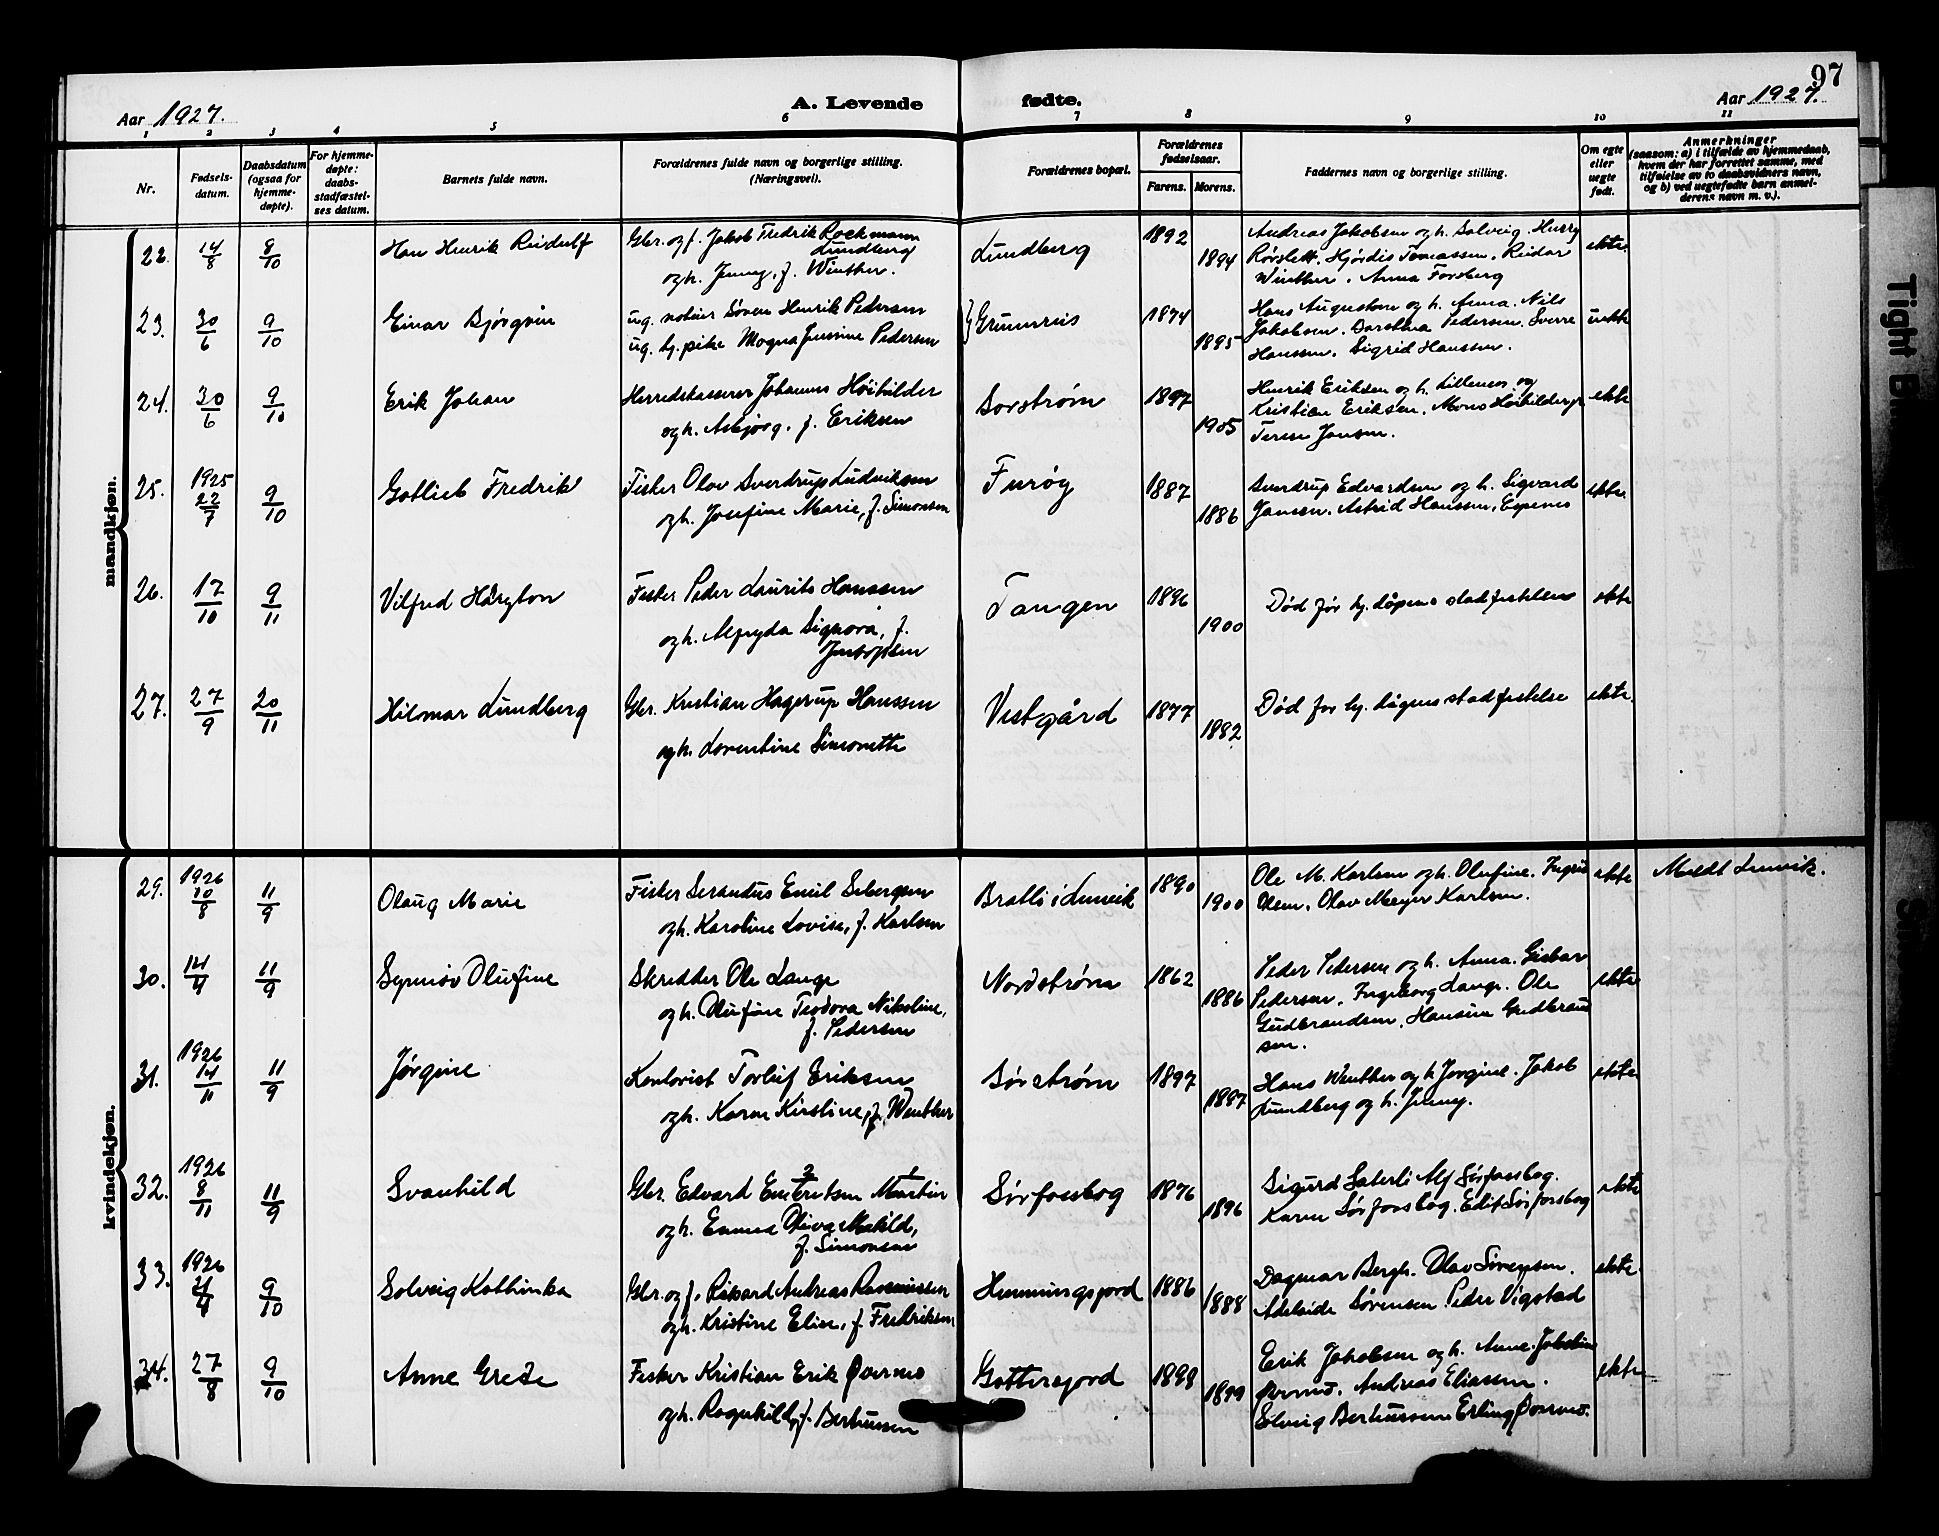 97
Aar 1927.
A. Levende fødte.
Aar 1927.
1 2 3 4 5 6 7 8 9 10 11
Nr.
Fødsels-
datum.
Daabsdatum
(ogsaa for
hjemme-
døpte).
For hjemme-
døpte:
daabs-
stadfæstel-
ses datum.
Barnets fulde navn.
Forældrenes fulde navn og borgerlige stilling.
(Næringsvei).
Forældrenes bopæl.
Forældrenes
fødselsaar.
Farens. Morens.
Faddernes navn og borgerlige stilling.
Om egte
eller
uegte
født.
Anmerkninger
(saasom: a) i tilfælde av hjemmedaab,
hvem der har forrettet samme, med
tilføielse av to daabsvidners navn,
og b) ved uegtefødte barn anmel-
derens navn m. v.).
mandkjøn.
22. 14/8 8/10 Hans Henrik Reidulf
Gbr. og f. Jakob Fredrik Rockmann
Lundberg
og h. Jenny, f. Winther.
Lundberg 1892 1894
Andreas Jakobsen og h. Solveig, Harry
Rørslett. Hjørdis Tomassen. Reidar
Winther. Anna Forsberg
ekte
23. 30/6 9/10 Einar Bjørgvin
ug. notbas Søren Henrik Pedersen
ug. hj. pike Magna Jensine Pedersen
Grunnreis 1874 1895
Hans Augustsen og h. Anna. Nils
Jakobsen. Dorthea Pedersen. Sverre
Hanssen. Sigrid Hanssen.
uekte
24. 30/6 9/10 Erik Johan
Herredskasserer Johannes Høibilder
og h. Asbjørg, f. Eriksen
Sørstrøm 1897 1905
Henrik Eriksen og h. Lillemor og
Kristian Eriksen. Mons Høibilder
Terese Jensen.
ekte
25. 1925 22/7 9/10 Gotlieb Fredrik
Fisker Olav Sverdrup Ludviksen
og h. Josefine Marie, f. Simonsen
Furøy 1887 1886
Sverdrup Edvardsen og h. Sigvard
Jansen. Astrid Hanssen, Espenes
ekte
26. 17/10 9/11 Vilfred Haryton
Fisker Peder Laurits Hanssen
og h. Signora, f.
Tangen 1896 1900
Død før hj. dåpens stadfestelse
ekte
27. 27/9 20/11 Hilmar Lundberg
Gbr. Kristian Hagerup Hanssen
og h. Lorentine Simonette
Vestgård 1877 1882
Død før hj. dåpens stadfestelse
ekte
kvindekjøn.
29. 1926 10/8 11/9 Olaug Marie
Fisker Serandus Emil Sebergsen
og h. Karoline Lovise, f. Karlsen
Bratli i Lenvik 1890 1900
Ole M. Karlsen og h. Olufine. Ingrid
Olsen. Olav Meyer Karlsen.
ekte
Meldt Lenvik.
30. 14/4 11/9 Synnøv Olufine
Skredder Ole Lange
og h. Olufine Teodora Nikoline,
f. Pedersen
Nordstrøm 1862 1886
Peder Pedersen og h. Anna. Gisbar
Pedersen, Ingeborg Lange. Ole
Gudbrandsen. Hansine Gudbrand
sen.
ekte
31. 1926 14/11 11/9 Jørgine
Kontorist Torleif Eriksen
og h. Karen Kirstine, f. Winther
Sørstrøm 1897 1897
Hans Winther og h. Jorgine. Jakob
Lundberg og h. Jenny.
ekte
32. 1926 8/11 11/9 Svanhild
Gbr. Edvard Martin
og h. Emma Oliva Matild,
f. Simonsen
Sørfossbog 1876 1896
Sigurd Saterli Alf Sørfossbog.
Karen Sørfossbog. Edit Sørfossbog
ekte
33. 1926 21/4 9/10 Solveig Kathinka
Gbr. og f. Rikard Andreas Rasmussen
og h. Kristine Elise, f. Fredriksen
Hemmingsjord 1886 1888
Dagmar Bergh. Olav Sørensen.
Adelaide Sørensen. Peder Vigstad
ekte
34. 27/8 9/10 Anne Grete
Fisker Kristian Erik Overmo
og h. Ragnhild, f. Berteussen
Gottesjord 1898 1899
Erik Jakobsen og h. Anne. Jakobine
Overmo. Andreas Eliassen.
Solveig Berteussen Erling Overmo.
ekte
Tight Bi